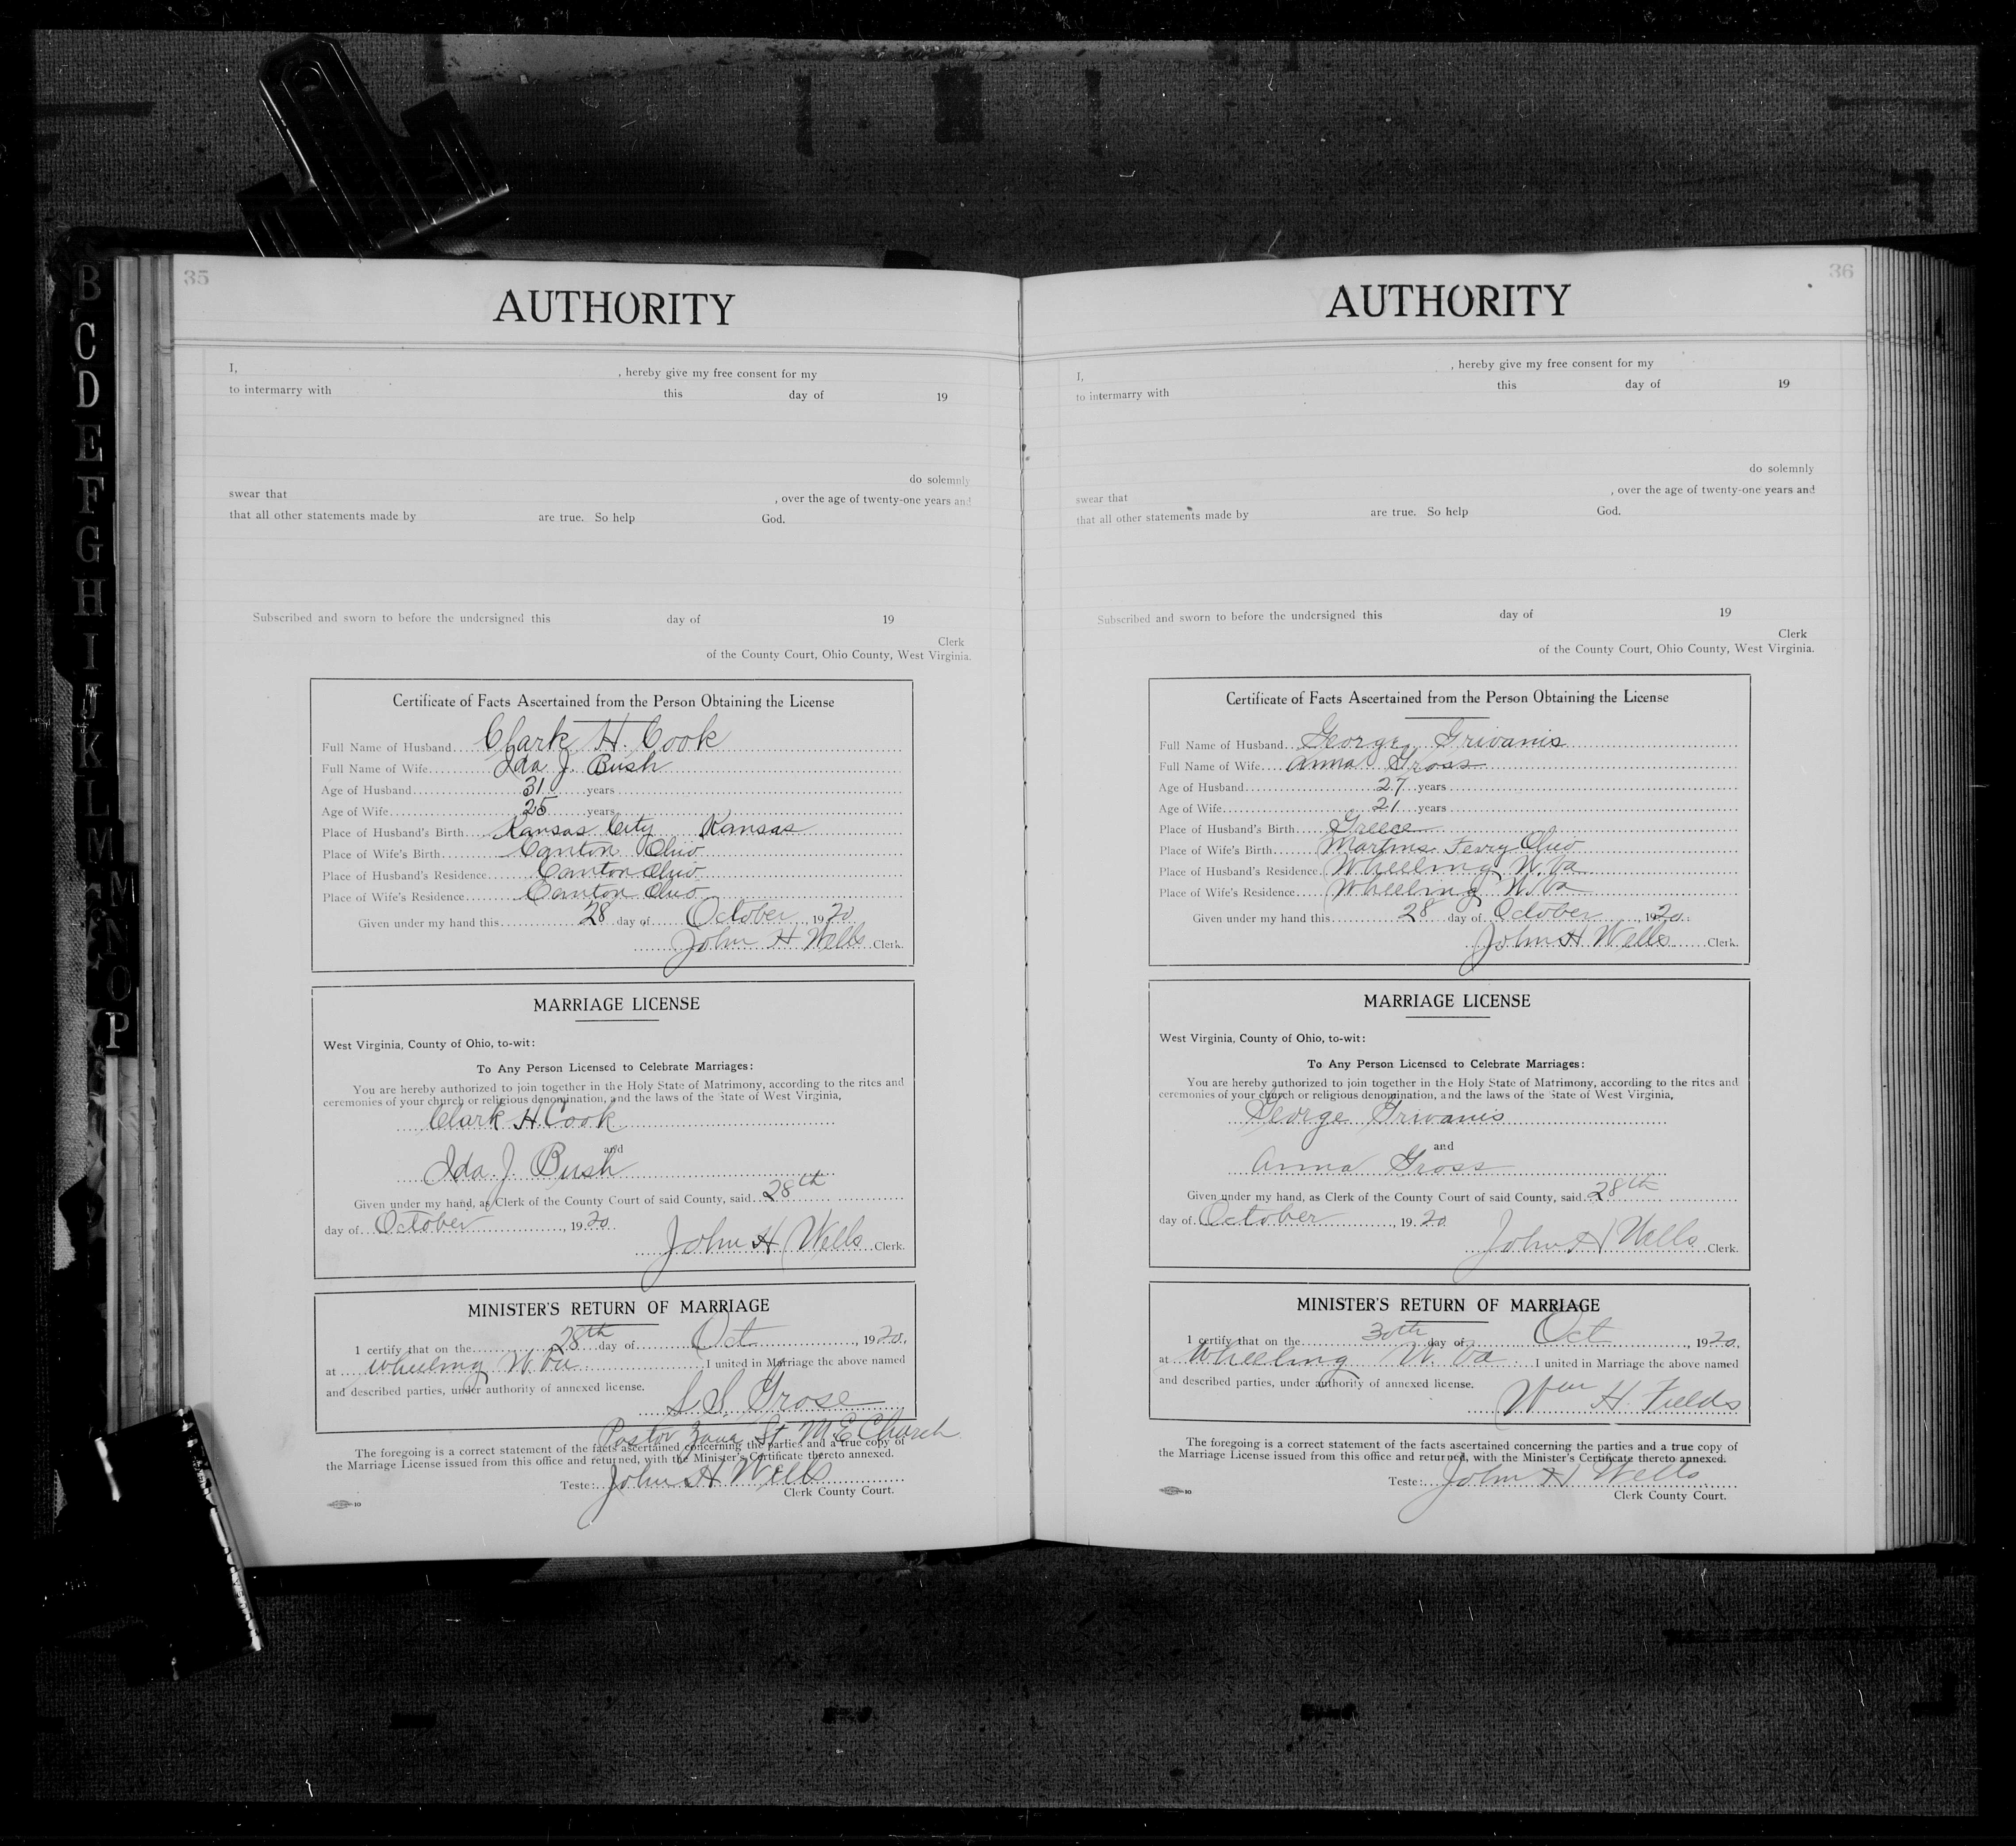 B
C
D
E
F
G
H
I
J
K
L
M
M
N
O
P
35
AUTHORITY
I, , hereby give my free consent for my
to intermarry with this day of 19
do solemnly
swear that , over the age of twenty-one years and
that all other statements made by are true. So help God.
Subscribed and sworn to before the undersigned this day of 19
Clerk
of the County Court, Ohio County, West Virginia.
Certificate of Facts Ascertained from the Person Obtaining the License
Full Name of Husband Clark H. Cook
Full Name of Wife Ida J. Bush
Age of Husband 31 years
Age of Wife 25 years
Place of Husband's Birth Kansas City Kansas
Place of Wife's Birth Canton Ohio
Place of Husband's Residence Canton Ohio
Place of Wife's Residence Canton Ohio
Given under my hand this 28 day of October 1920
John H Wells Clerk.
MARRIAGE LICENSE
West Virginia, County of Ohio, to-wit:
To Any Person Licensed to Celebrate Marriages:
You are hereby authorized to join together in the Holy State of Matrimony, according to the rites and
ceremonies of your church or religious denomination, and the laws of the State of West Virginia,
Clark H. Cook
and
Ida J. Bush
Given under my hand, as Clerk of the County Court of said County, said 28th
day of October, 1920
John H Wells Clerk.
MINISTER'S RETURN OF MARRIAGE
I certify that on the 28th day of Oct, 1920,
at Wheeling W. Va I united in Marriage the above named
and described parties, under authority of annexed license.
S. S. Grose
Pastor Zane St M E Church
The foregoing is a correct statement of the facts ascertained concerning the parties and a true copy of
the Marriage License issued from this office and returned, with the Minister's Certificate thereto annexed.
Teste: John H Wells
Clerk County Court.
36
AUTHORITY
I, , hereby give my free consent for my
to intermarry with this day of 19
do solemnly
swear that , over the age of twenty-one years and
that all other statements made by are true. So help God.
Subscribed and sworn to before the undersigned this day of 19
Clerk
of the County Court, Ohio County, West Virginia.
Certificate of Facts Ascertained from the Person Obtaining the License
Full Name of Husband George Grivanis
Full Name of Wife Anna Gross
Age of Husband 27 years
Age of Wife 21 years
Place of Husband's Birth Greece
Place of Wife's Birth Martins Ferry Ohio
Place of Husband's Residence Wheeling W. Va
Place of Wife's Residence Wheeling W. Va
Given under my hand this 28 day of October, 1920.
John H Wells Clerk.
MARRIAGE LICENSE
West Virginia, County of Ohio, to-wit:
To Any Person Licensed to Celebrate Marriages:
You are hereby authorized to join together in the Holy State of Matrimony, according to the rites and
ceremonies of your church or religious denomination, and the laws of the State of West Virginia,
George Grivanis
and
Anna Gross
Given under my hand, as Clerk of the County Court of said County, said 28th
day of October, 1920
John H Wells Clerk.
MINISTER'S RETURN OF MARRIAGE
I certify that on the 30th day of Oct, 1920,
at Wheeling W. Va I united in Marriage the above named
and described parties, under authority of annexed license.
Wm H. Fields
The foregoing is a correct statement of the facts ascertained concerning the parties and a true copy of
the Marriage License issued from this office and returned, with the Minister's Certificate thereto annexed.
Teste: John H Wells
Clerk County Court.